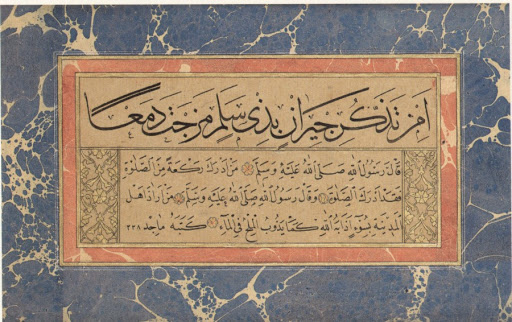 امن تذكر جيران بذي سلم مزجت دمعا
قال رسول الله صلى الله عليه وسلم من ادرك ركعة من الصلوة
فقد ادرك الصلوة وقال رسول الله صلى الله عليه وسلم من اراد اهل
المدينة بسوء اذابه الله كما يذوب الملح في الماء كتبه ماجد ٣٢٨